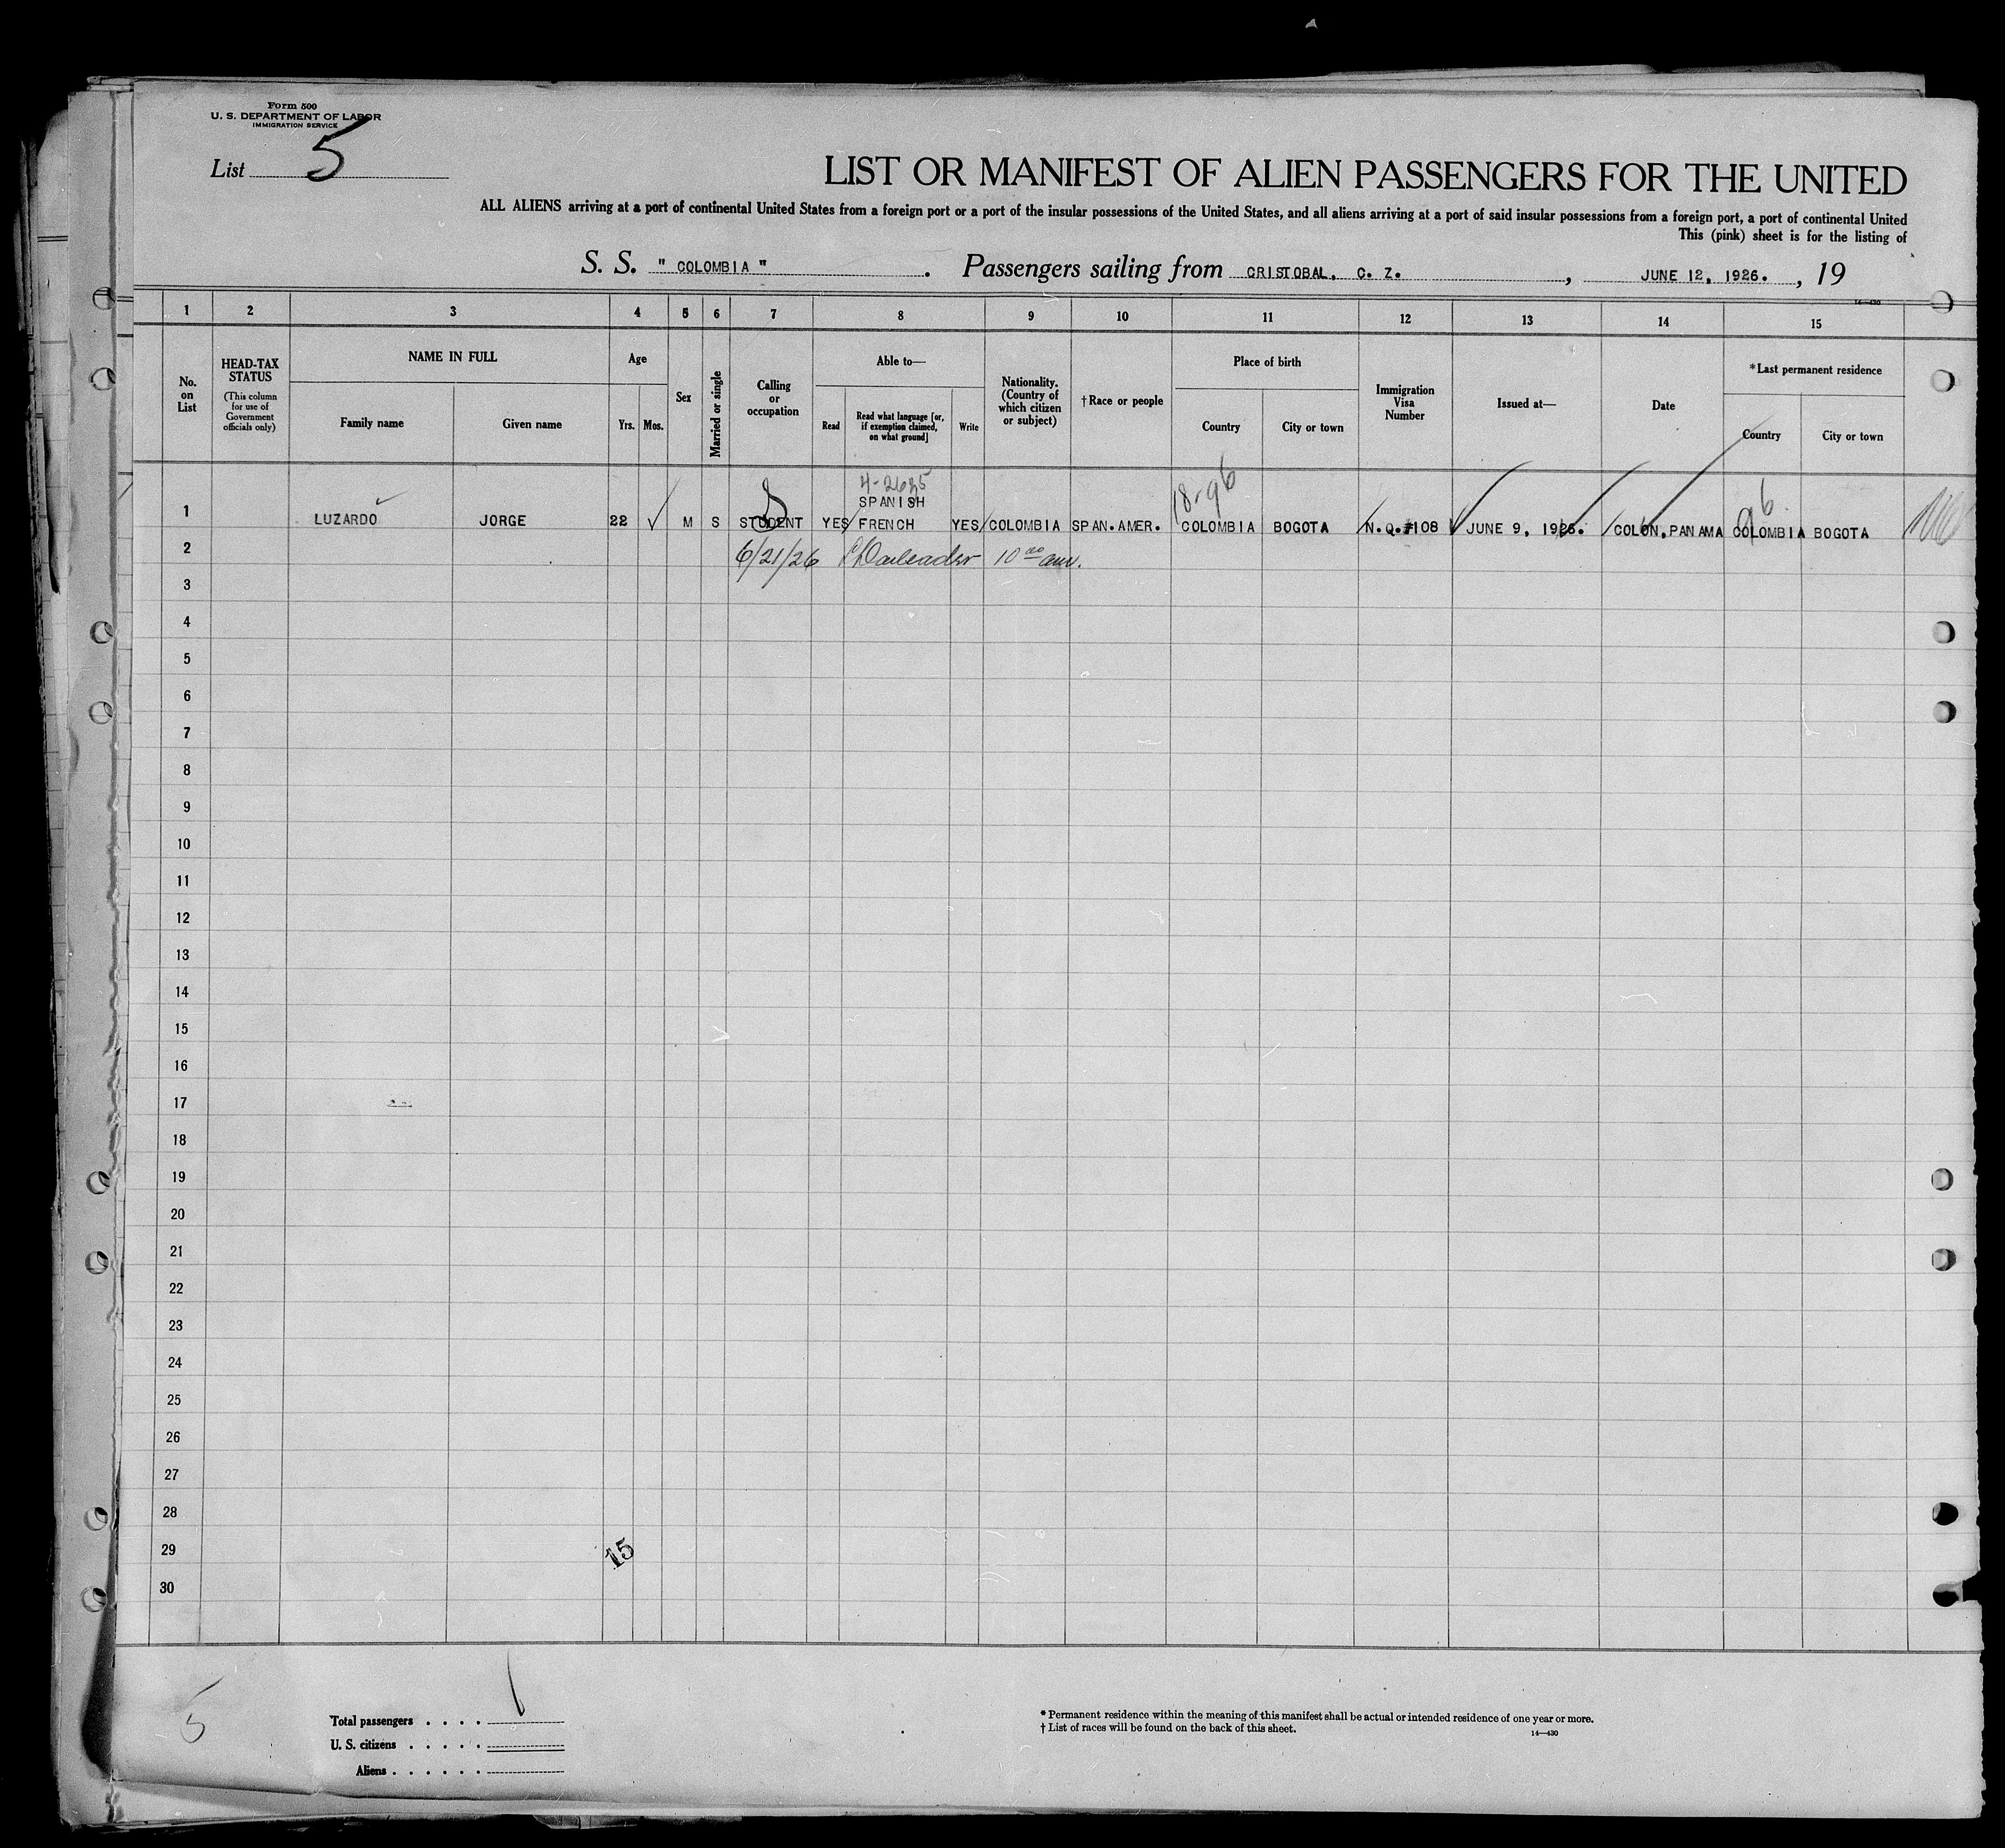 Form 500
U. S. DEPARTMENT OF LABOR
IMMIGRATION SERVICE
List 5
LIST OR MANIFEST OF ALIEN PASSENGERS FOR THE UNITED
ALL ALIENS arriving at a port of continental United States from a foreign port or a port of the insular possessions of the United States, and all aliens arriving at a port of said insular possessions from a foreign port, a port of continental United
This (pink) sheet is for the listing of
S. S. " COLOMBIA " . Passengers sailing from CRISTOBAL, C. Z. , JUNE 12, 1926. , 19
14—430
1 2 3 4 5 6 7 8 9 10 11 12 13 14 15
No. on List
HEAD-TAX STATUS
(This column for use of Government officials only)
NAME IN FULL
Family name
Given name
Age
Yrs. Mos.
Sex
Married or single
Calling or occupation
Able to—
Read
Read what language [or, if exemption claimed, on what ground]
Write
Nationality. (Country of which citizen or subject)
†Race or people
Place of birth
Country
City or town
Immigration Visa Number
Issued at—
Date
*Last permanent residence
Country
City or town
18-96
96
SPANISH
1 LUZARDO JORGE 22 M S STUDENT YES FRENCH YES COLOMBIA SPAN.AMER. COLOMBIA BOGOTA N.Q.#108 JUNE 9, 1926. COLON,PANAMA COLOMBIA BOGOTA
2 6/21/26 10 00 am.
3
4
5
6
7
8
9
10
11
12
13
14
15
16
17
18
19
20
21
22
23
24
25
26
27
28
29
15
30
5
Total passengers . . . . 1
U. S. citizens . . . . .
Aliens . . . . . .
* Permanent residence within the meaning of this manifest shall be actual or intended residence of one year or more.
† List of races will be found on the back of this sheet.
14—430